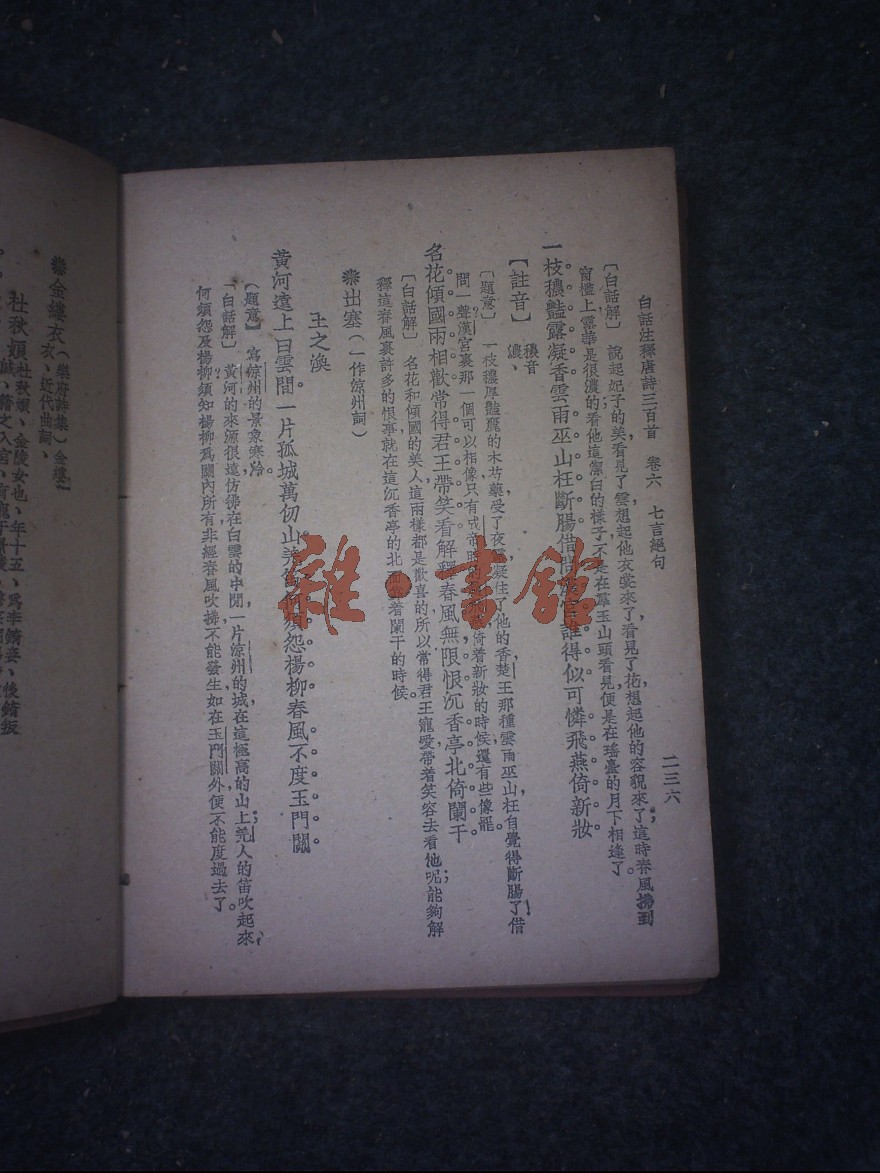 白話注釋唐詩三百首　卷六　七言絕句　二三六
〔白話解〕　說起妃子的美看見了雲想起他衣裳來了看見了花想起他的容貌來了這時春風拂到
窗檻上露華是很濃的看他這潔白的樣子不是在羣玉山頭看見便是在瑤臺的月下相逢了
一枝穠豔露凝香雲雨巫山枉斷腸借問漢宮誰得似可憐飛燕倚新妝
【註音】　穠音濃、
〔題意〕　一枝穠厚豔麗的木芍藥受了夜露凝住了他的香楚王那種雲雨巫山枉自覺得斷腸了借
問一聲漢宮裏那一個可以相像只有
倚着新妝的時候還有些像罷
名花傾國兩相歡常得君王帶笑看解釋春風無限恨沉香亭北倚闌干
〔白話解〕　名花和傾國的美人這兩樣都是歡喜的所以常得君王寵愛帶着笑容去看他呢能夠解
釋這春風裏許多的恨事就在這沉香亭的北面
着闌干的時候
出塞（一作涼州詞）
王之渙
黃河遠上白雲間一片孤城萬仞山羌笛何須怨楊柳春風不度玉門關
〔題意〕　寫涼州的景象寒冷
〔白話解〕　黃河的來源很遠仿佛在白雲的中間一片涼州的城在這極高的山上羌人的笛吹起來
何須怨及楊柳須知楊柳爲關內所有非經春風吹拂不能發生如在玉門關外便不能度過去了
金縷衣（樂府詩集）金縷
衣、近代曲詞、
杜秋娘　杜秋娘、金陵女也、年十五、爲李錡妾、後錡叛
雜·書館